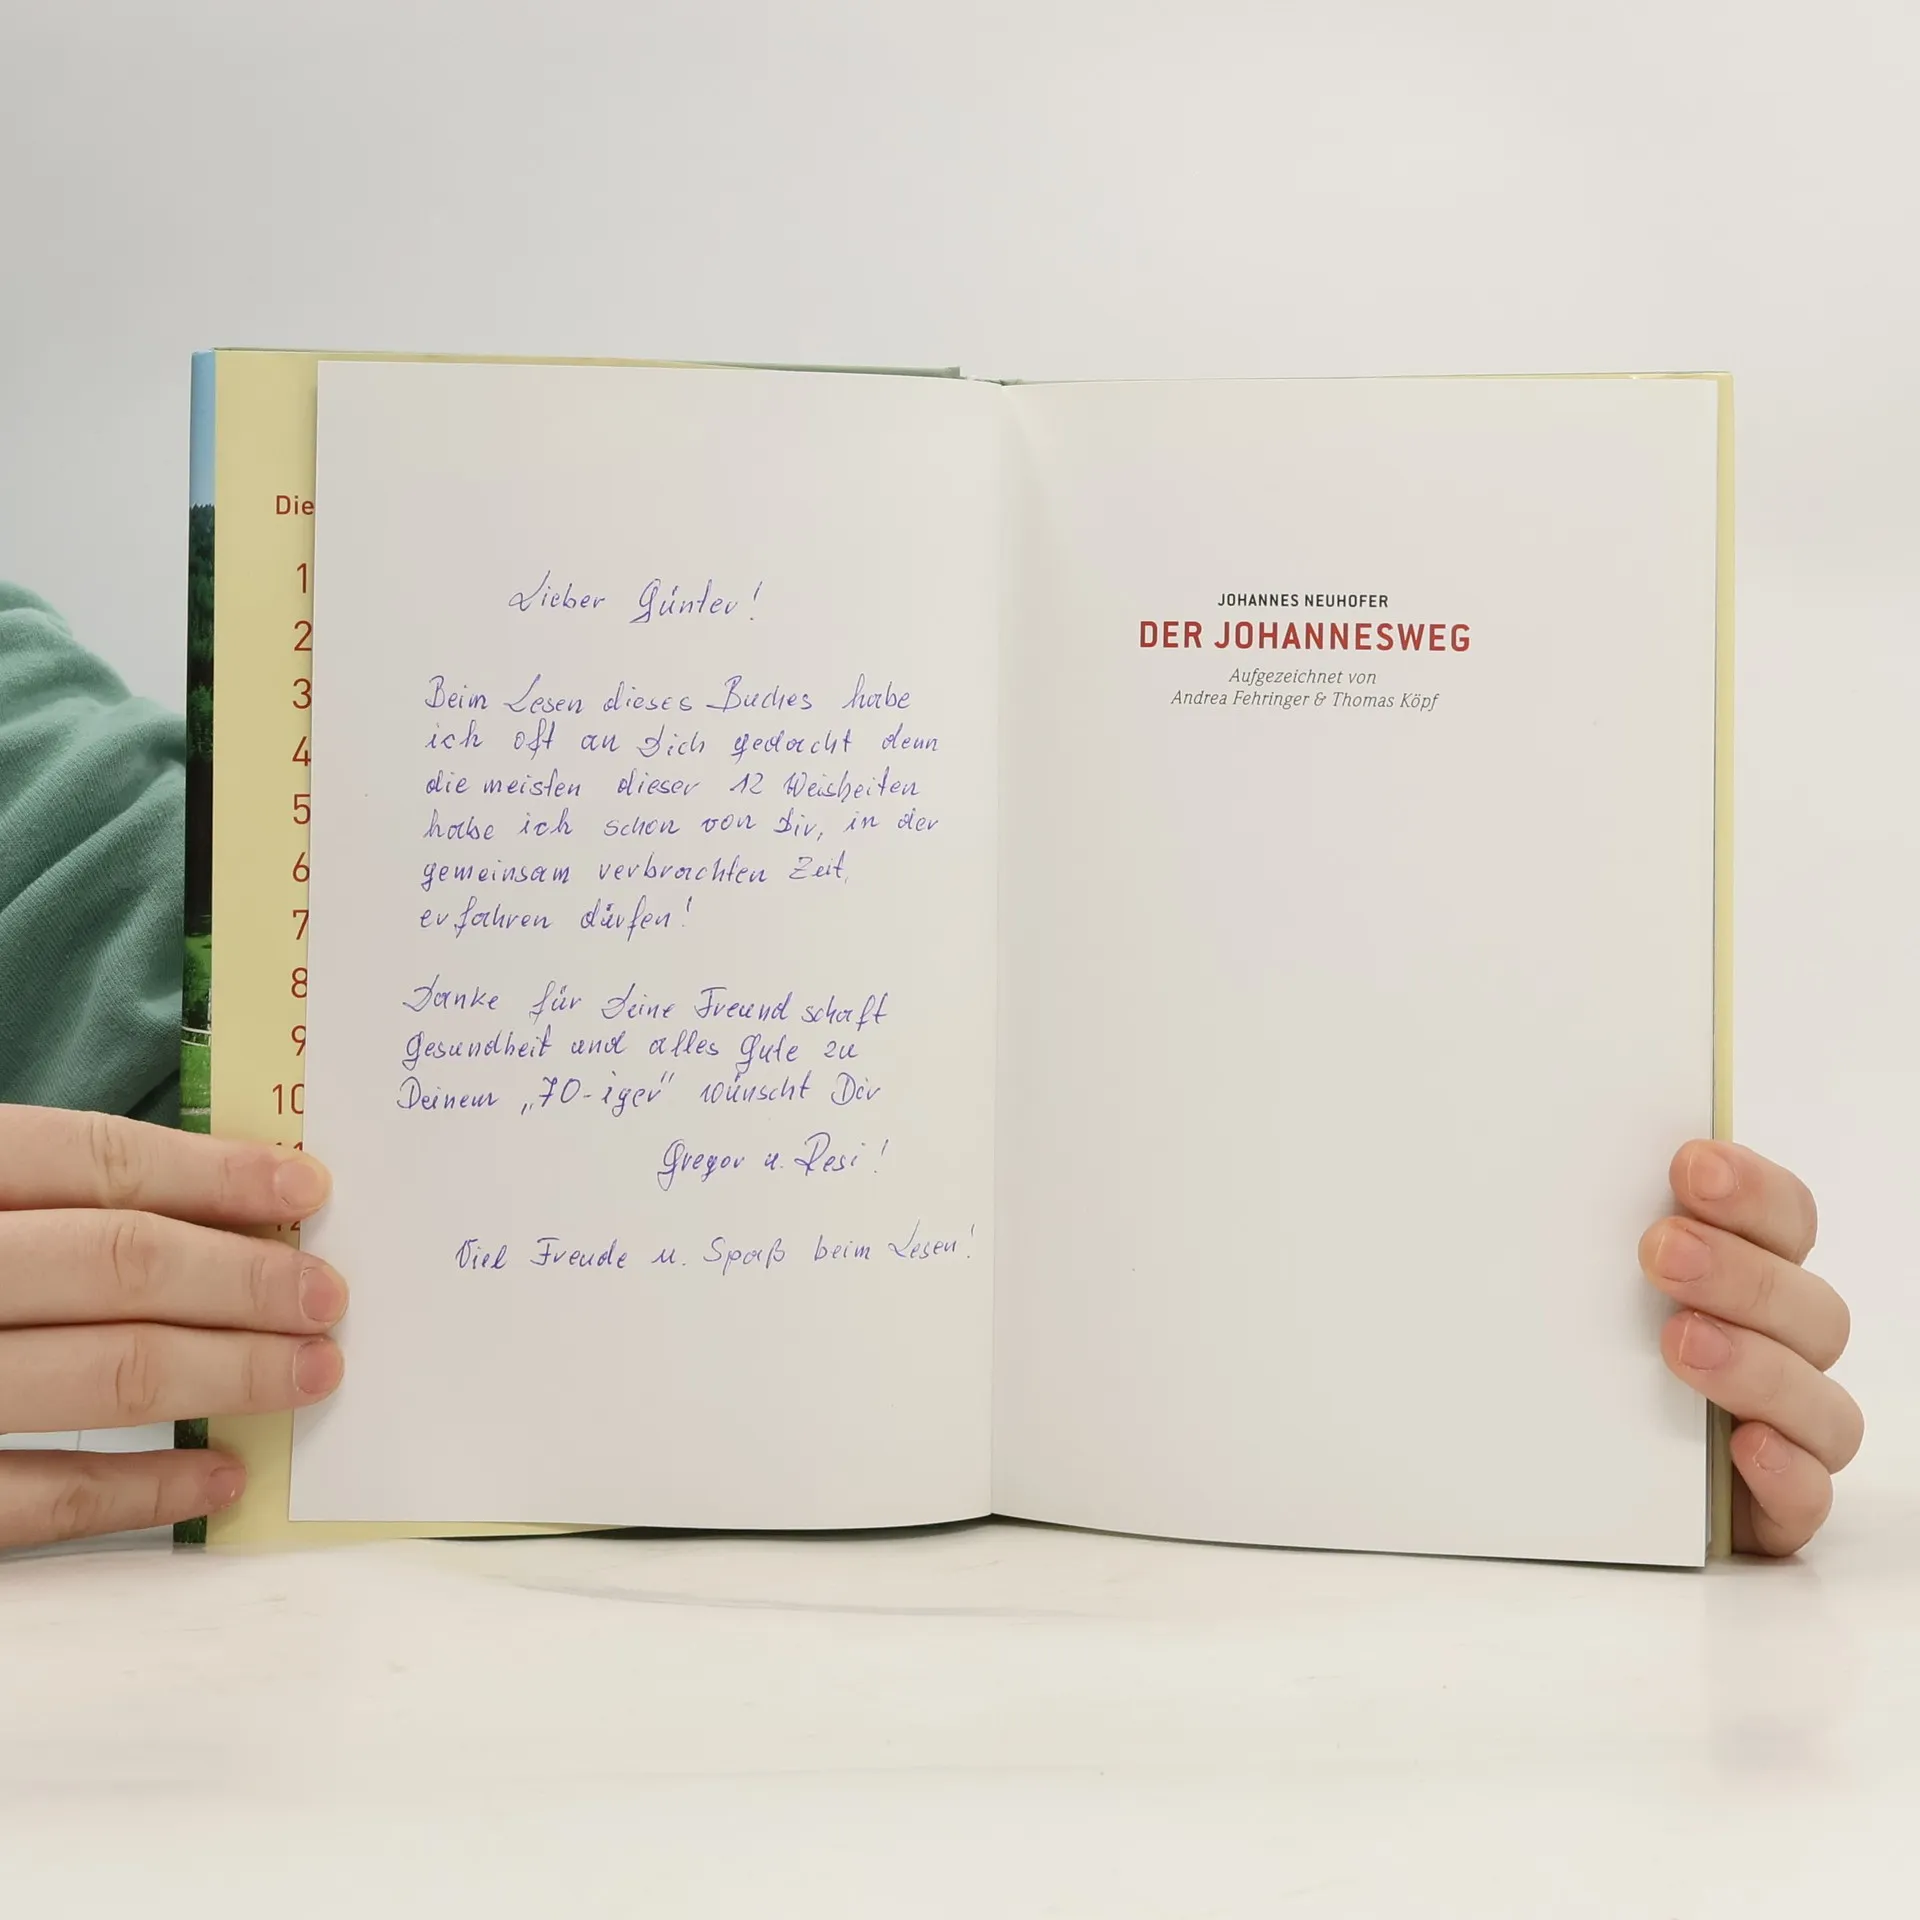 Die
1
2
3
4
5
6
7
8
9
10
11
12
Lieber Günter!
Beim Lesen dieses Buches habe
ich oft an Dich gedacht denn
die meisten dieser 12 Weisheiten
habe ich schon von Dir, in der
gemeinsam verbrachten Zeit,
erfahren dürfen!
Danke für Deine Freundschaft
Gesundheit und alles Gute zu
Deinem „70-iger" wünscht Dir
Gregor u. Resi!
Viel Freude u. Spaß beim Lesen!
JOHANNES NEUHOFER
DER JOHANNESWEG
Aufgezeichnet von
Andrea Fehringer & Thomas Köpf